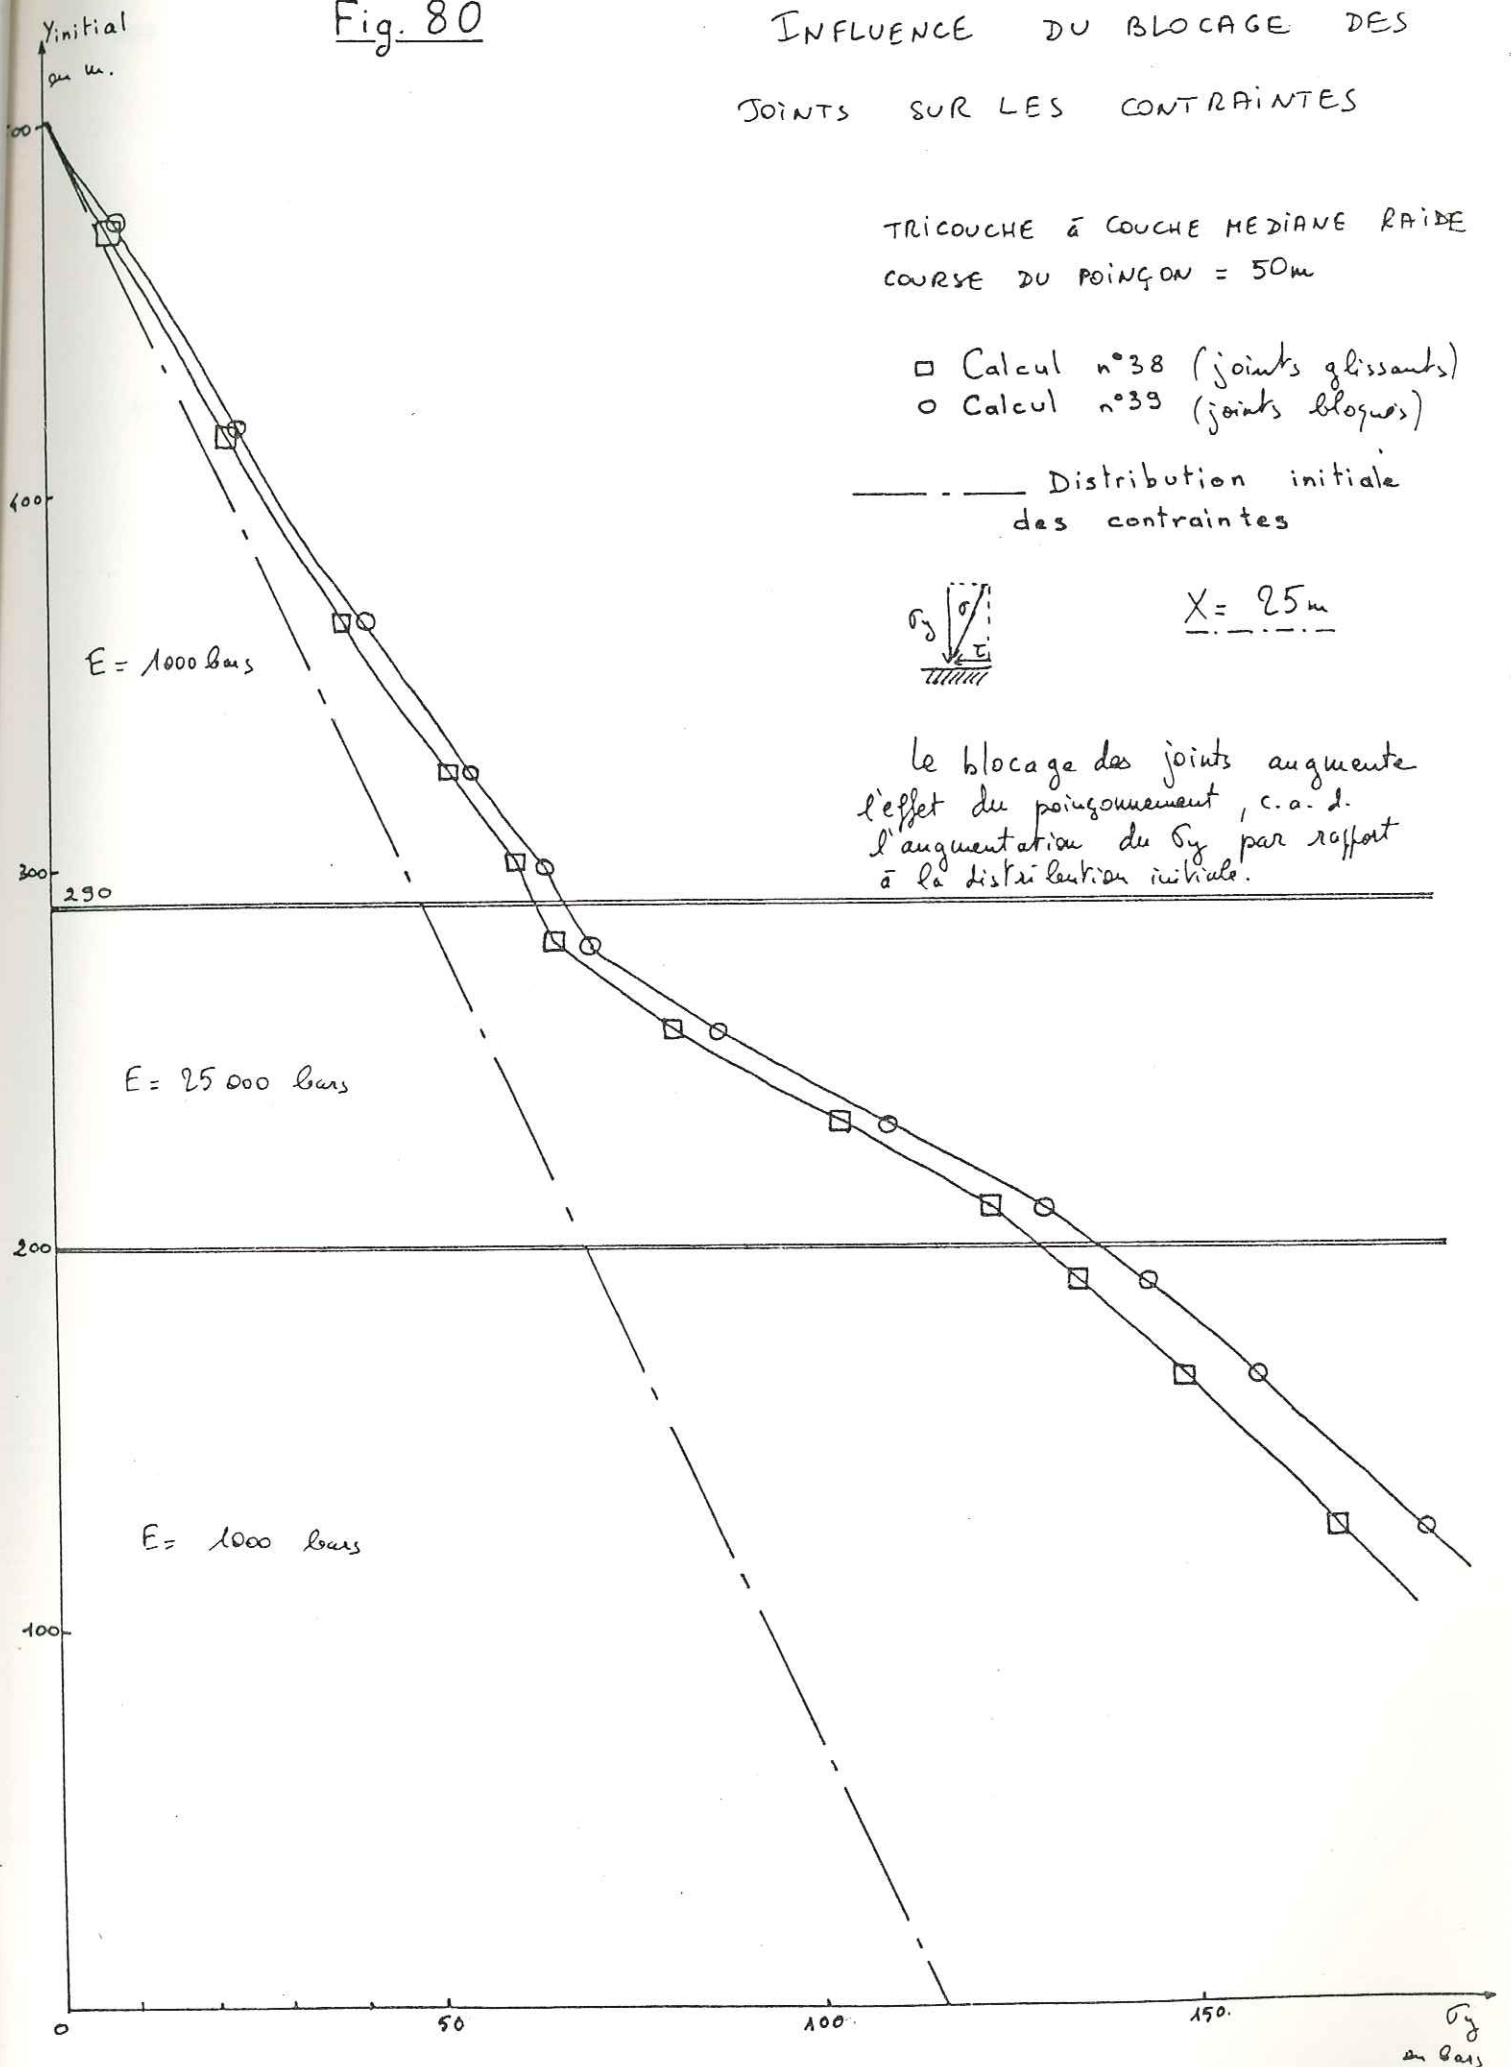 Fig. 80
INFLUENCE DU BLOCAGE DES
JOINTS SUR LES CONTRAINTES
Yinitial
en m.
TRICOUCHE à COUCHE MEDIANE RAIDE
COURSE DU POINÇON = 50m
□ Calcul n°38 (joints glissants)
○ Calcul n°39 (joints bloqués)
Distribution initiale
des contraintes
σy
σ
τ
X = 25m
Le blocage des joints augmente
l'effet du poinçonnement, c.a.d.
l'augmentation du σy par rapport
à la distribution initiale.
00
400
E = 1000 bars
300
290
E = 25 000 bars
200
E = 1000 bars
100
0
50
100
150
σy
en bars